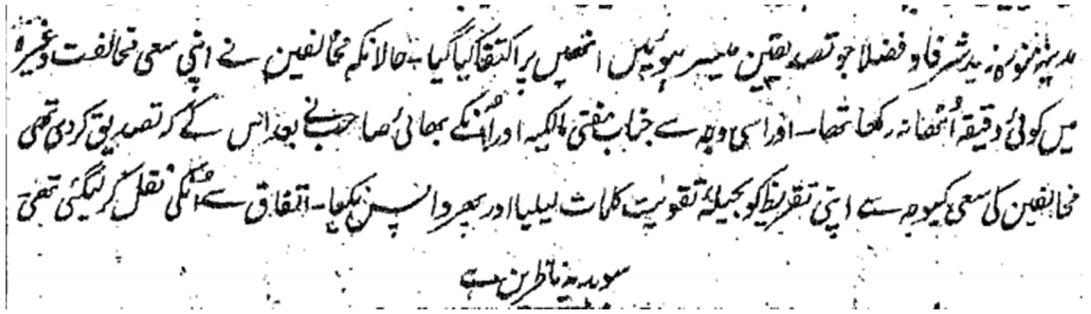 مدینہ منورہ زید شرفا و فضلا جو تصدیقین میسر ہوئیں انھیں پر اکتفا کیا گیا۔ حالانکہ مخالفین نے اپنی سعی مخالفت وغیرہ
میں کوئی دقیقہ اُٹھا نہ رکھا تھا۔ اور اسی وجہ سے جناب مفتی مالکیہ اور اُنکے بھائی صاحب نے بعد اس کے کہ تصدیق کر دی تھی
مخالفین کی سعی کیوجہ سے اپنی تقریظ کو بحیلۂ تقویت کلمات لیلیا اور پھر واپس نکیا۔ اتفاق سے اُنکی نقل کر لیگئی تھی
سو ہدیہ ناظرین ہے